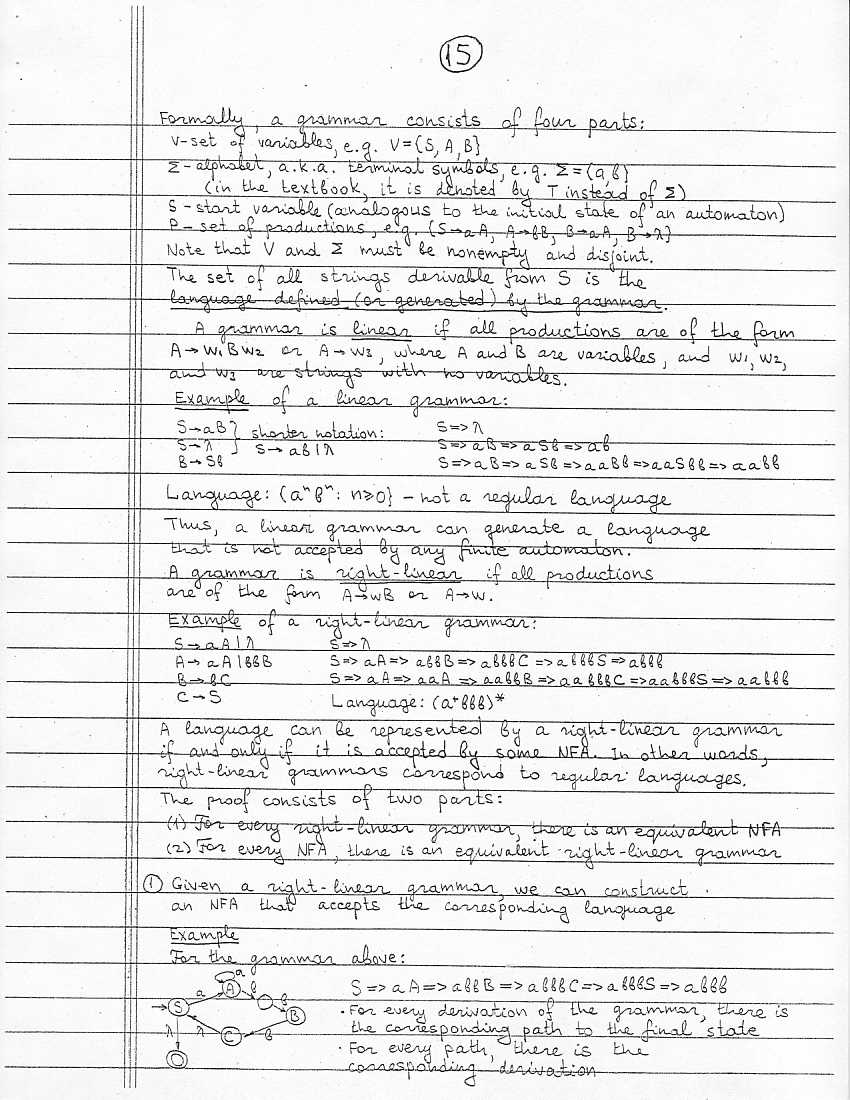 15
Formally, a grammar consists of four parts:
V-set of variables, e.g. V={S, A, B}
Σ-alphabet, a.k.a. terminal symbols, e.g. Σ={a, b}
(in the textbook, it is denoted by T instead of Σ)
S - start variable (analogous to the initial state of an automaton)
P - set of productions, e.g. {S→aA, A→bB, B→aA, B→λ}
Note that V and Σ must be nonempty and disjoint.
The set of all strings derivable from S is the
language defined (or generated) by the grammar.
A grammar is linear if all productions are of the form
A→w1Bw2 or A→w3, where A and B are variables, and w1, w2,
and w3 are strings with no variables.
Example of a linear grammar:
S→aB } shorter notation: S=>λ
S→λ } S→aB|λ S=>aB=>aSb=>ab
B→Sb S=>aB=>aSb=>aaBb=>aaSbb=>aabb
Language: {aⁿbⁿ: n≥0} - not a regular language
Thus, a linear grammar can generate a language
that is not accepted by any finite automaton.
A grammar is right-linear if all productions
are of the form A→wB or A→w.
Example of a right-linear grammar:
S→aA|λ S=>λ
A→aA|bbB S=>aA=>abbB=>abbbC=>abbbS=>abbb
B→bC S=>aA=>aaA=>aabbB=>aabbbC=>aabbbS=>aabbb
C→S Language: (a⁺bbb)*
A language can be represented by a right-linear grammar
if and only if it is accepted by some NFA. In other words,
right-linear grammars correspond to regular languages.
The proof consists of two parts:
(1) For every right-linear grammar, there is an equivalent NFA
(2) For every NFA, there is an equivalent right-linear grammar
① Given a right-linear grammar, we can construct
an NFA that accepts the corresponding language
Example
For the grammar above:
a
a A b S=>aA=>abbB=>abbbC=>abbbS=>abbb
S b B · For every derivation of the grammar, there is
λ λ C b the corresponding path to the final state
· For every path, there is the
corresponding derivation